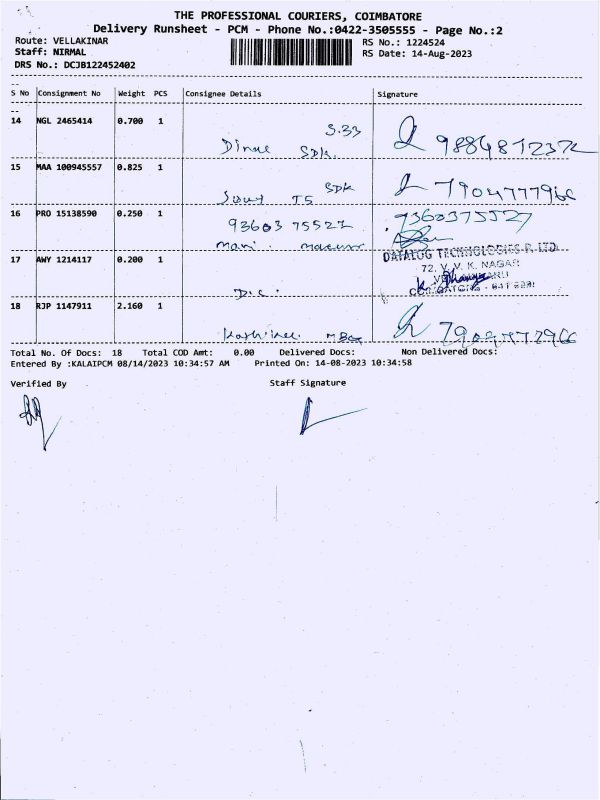 THE PROFESSIONAL COURIERS, COIMBATORE
Delivery Runsheet - PCM - Phone No.:0422-3505555 - Page No.:2
Route: VELLAKINAR RS No.: 1224524
Staff: NIRMAL RS Date: 14-Aug-2023
DRS No.: DCJB122452402
S No Consignment No Weight PCS Consignee Details Signature
14 NGL 2465414 0.700 1
S.33
SDK.
15 MAA 100945557 0.825 1
SDK
16 PRO 15138590 0.250 1 93603 75527 9360375527
Mani
17 AWY 1214117 0.200 1 DATALOG TECHNOLOGIES P. LTD.
72, V.V.K. NAGAR
D.C.
18 RJP 1147911 2.160 1
Total No. Of Docs: 18 Total COD Amt: 0.00 Delivered Docs: Non Delivered Docs:
Entered By :KALAIPCM 08/14/2023 10:34:57 AM Printed On: 14-08-2023 10:34:58
Verified By Staff Signature